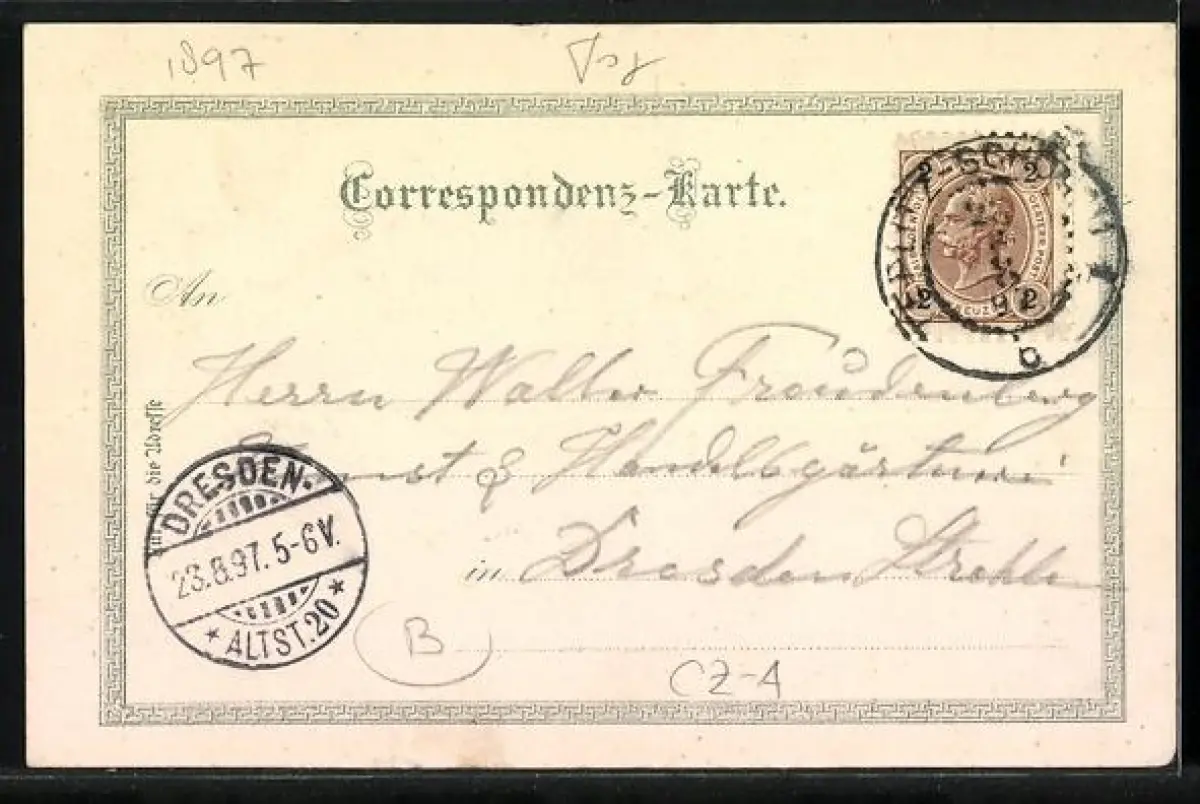 1897
Correspondenz-Karte.
2 2
OESTERR. POST
2 2
TEPLITZ-SCHÖNAU
97
b
An
Herrn Walter Freudenberg
Kunst & Handelsgärtnerei
in Dresden Strehlen
Nur für die Adresse
DRESDEN.
23.8.97. 5-6V.
* ALTST.20 *
B
CZ-4